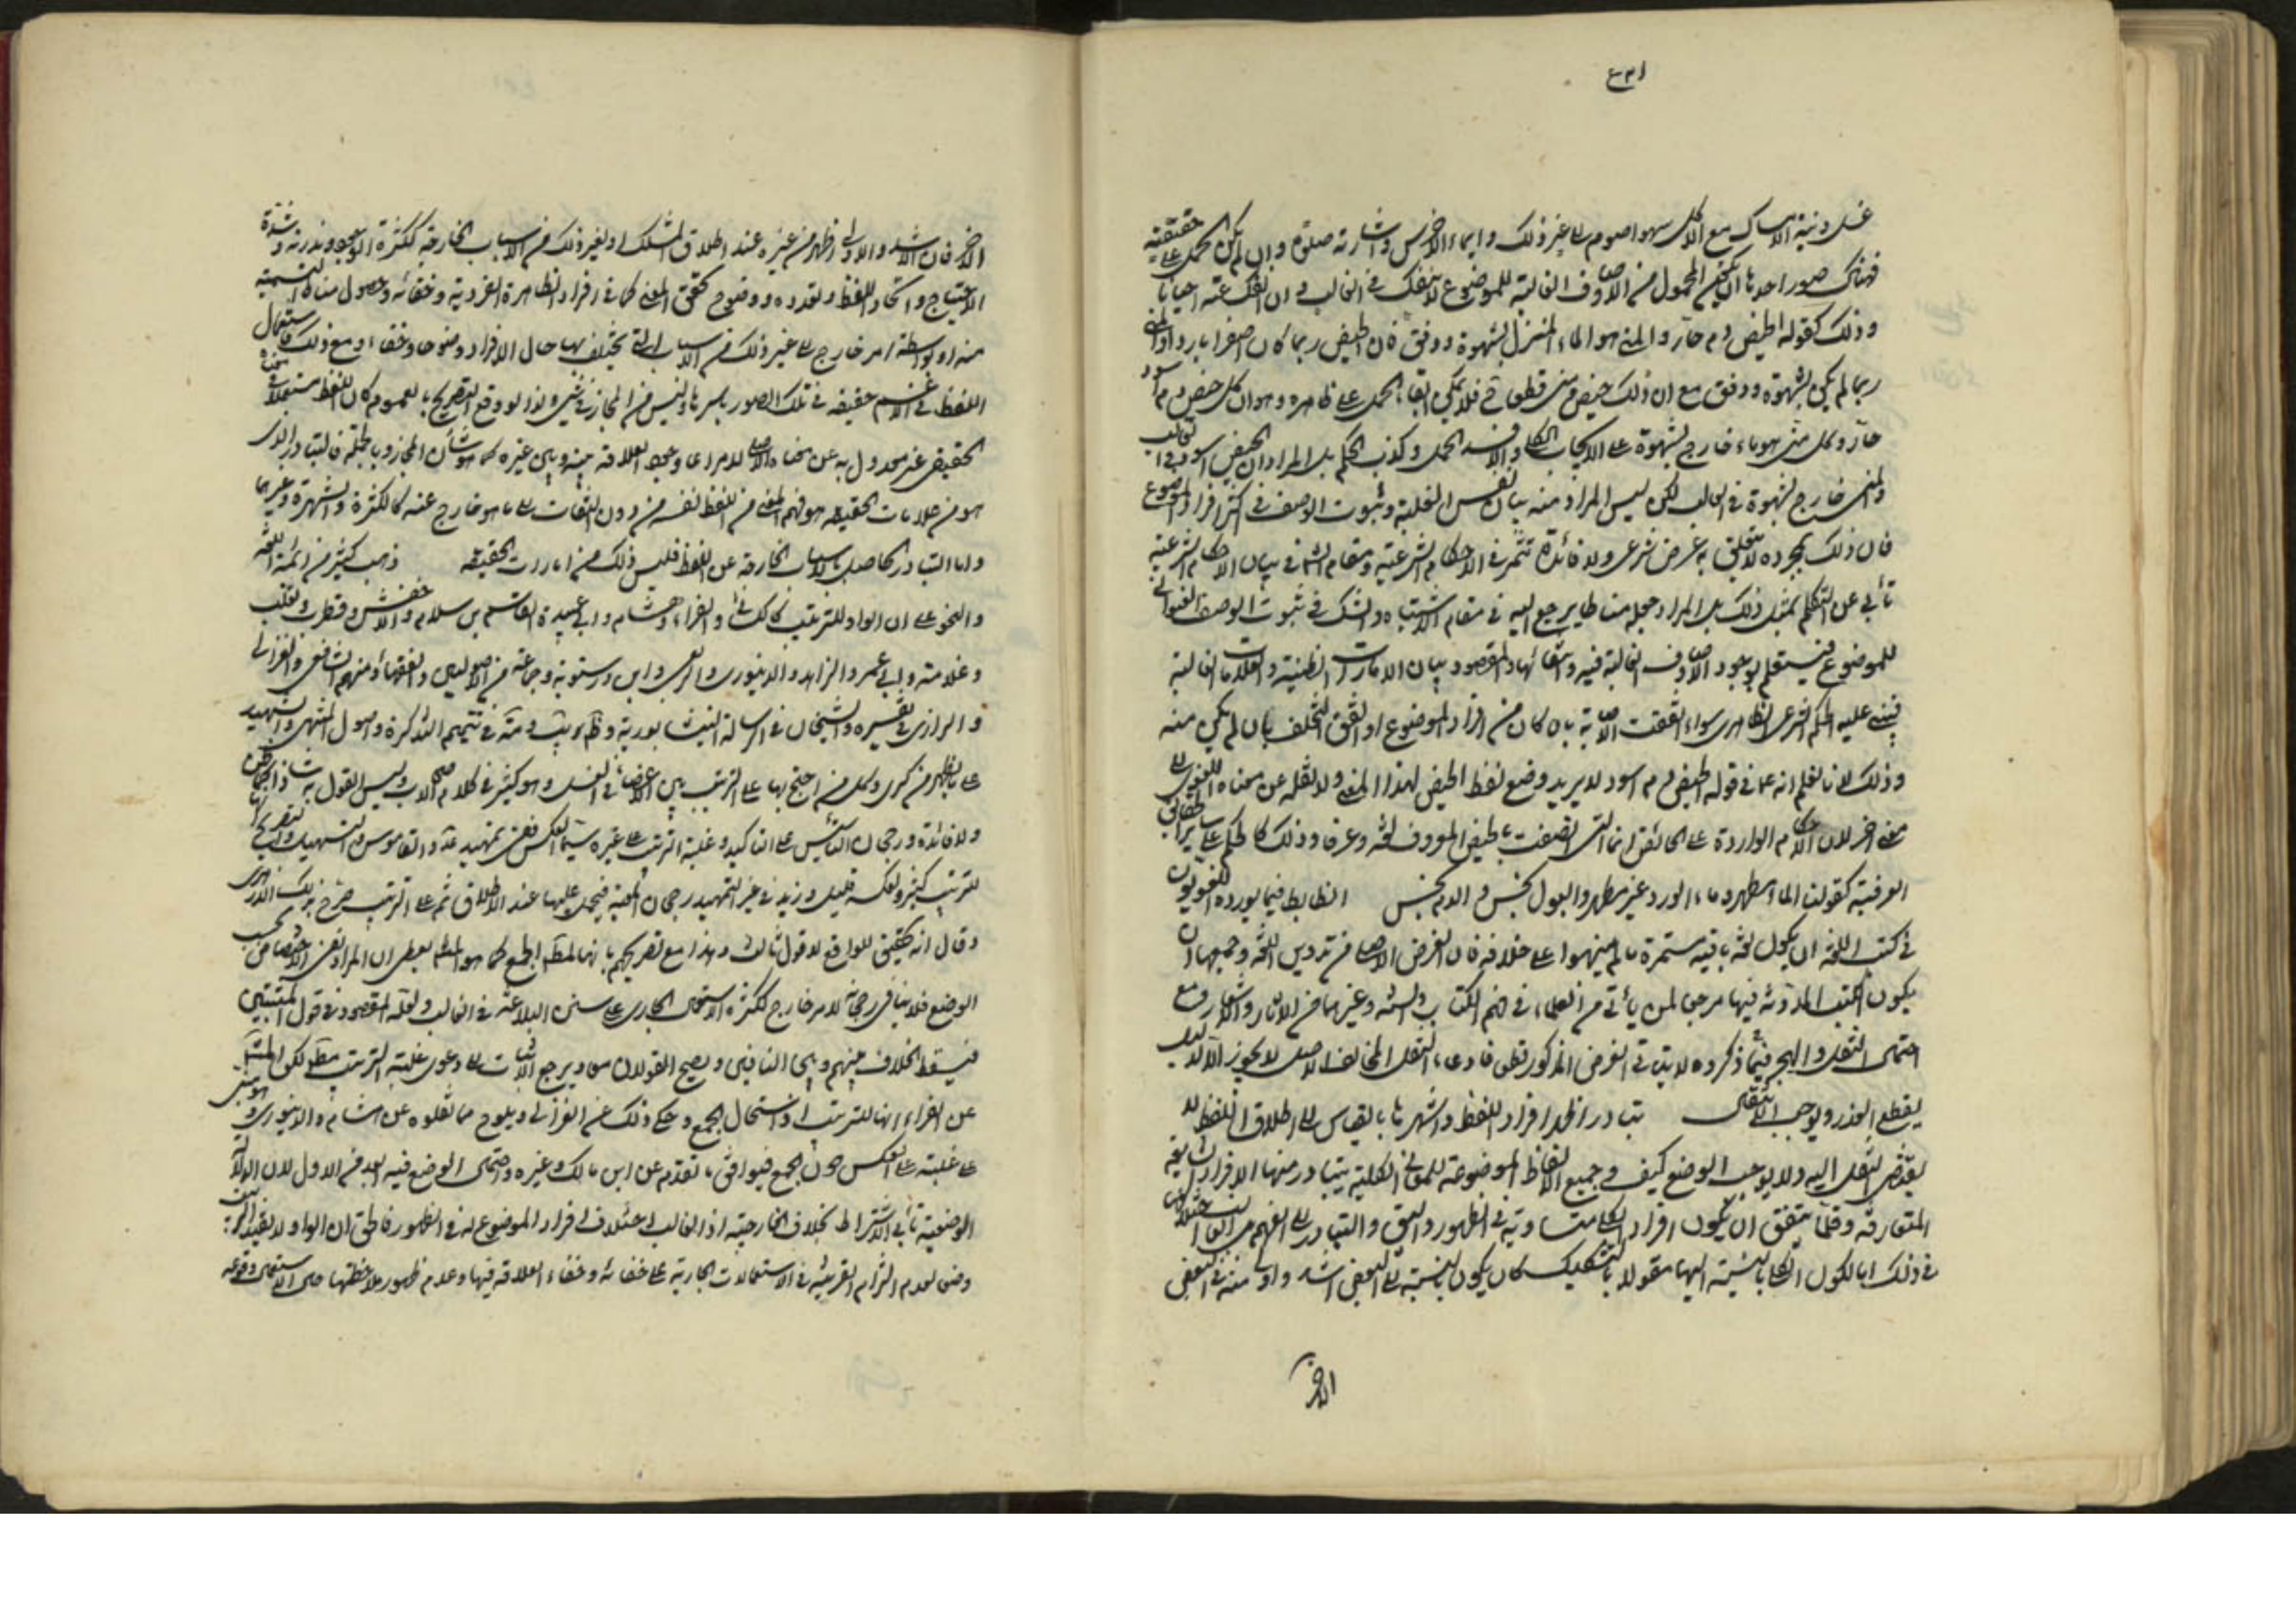 غسل ونية الامساك مع الاكل سهوا صوم الى غير ذلك وايماء الاخرس واشارته صلوة وان لم يكن الحمل على حقيقته
فهناك صور احدها ان يكون المحمول من الاوصاف الغالبة للموضوع لا ينفك في الغالب وان انفك عنه احيانا
وذلك كقوله الحيض دم حار والمني هو الماء المنزل بشهوة ودفق فان الحيض ربما كان اصفرا باردا والمني
ربما لم يكن بشهوة ودفق مع ان ذلك حيض ومني قطعا فلا يمكن ابقاء الحمل على ظاهره وهو ان كل حيض دم اسود
حار وكل مني هو ماء خارج بشهوة على الايجاب الكلي والا فسد الحمل وكذب الحكم بل المراد ان الحيض اسود في الغالب
والمني خارج بشهوة في الغالب لكن ليس المراد منه بيان نفس الغلبة وثبوت الوصف في اكثر افراد الموضوع
فان ذلك بمجرده لا يتعلق به غرض شرعي ولا فائدة تثمر في الاحكام الشرعية ومقام الشارع في بيان الاحكام الشرعية
تأبى عن التكلم بمثل ذلك بل المراد جعله مناطا يرجع اليه في مقام الاشتباه والشك في ثبوت الوصف العنواني
للموضوع فيستعلم بوجود الاوصاف الغالبة فيه وانتفائها والمقصود بيان الامارات الظنية والعلامات الغالبة
فيبنى عليه الحكم الشرعي الظاهري سواء اتفقت الاصابة بان كان من افراد الموضوع او اتفق التخلف بان لم يكن منه
وذلك لانا نعلم انه ع في قوله الحيض دم اسود لا يريد وضع لفظ الحيض لهذا المعنى ولا نقله عن معناه اللغوي الى
معنى اخر لان الاحكام الواردة على الحائض انما التي اتصفت بالحيض المعروف لغة وعرفا وذلك كالحكم على سائر الحقائق
العرفية كقولنا الماء مطهر وماء الورد غير مطهر والبول نجس والدم نجس الظابط فيما يورده اللغويون
في كتب اللغة ان يكون لغة باقية مستمرة ما لم ينبهوا على خلافه فان الغرض الاصلي من تدوين اللغة وجمعها ان
يكون الكتب المدونة فيها مرجعا لمن يأتي من العلماء في فهم الكتاب والسنة وغيرهما من الاثار والاشعار ومع
احتمال النقل والهجر فيما ذكروه لا يتأتى الغرض المذكور قطعا فادعاء النقل المخالف للاصل لا يجوز الا لدليل
يقطع العذر ويوجب الانتقال تبادر اظهر افراد اللفظ واشهرها بالقياس الى اطلاق اللفظ لا
يقتضي النقل اليه ولا يوجب الوضع كيف وجميع الالفاظ الموضوعة للمعاني الكلية يتبادر منها الافراد الشايعة
المتعارفة وقلما يتفق ان يكون افراد الكلي متساوية في الظهور والسبق والتبادر الى الفهم من الغالب اختلافها
في ذلك اما لكون الكلي بالنسبة اليها مقولا بالتشكيك كان يكون بالنسبة الى البعض اشد واولى منه في البعض
الاخر
الاخر فان الاشد والاولى اظهر من غيره عند اطلاق المشكك او لغير ذلك من الاسباب الخارجة ككثرة الوجود وندرته وشدة
الاحتياج واتحاد اللفظ وتعدده ووضوح تحقق المعنى كما في افراد الظاهرة الفردية وخفائه وحصول مناط التسمية
منه او بواسطة امر خارج الى غير ذلك من الاسباب التي يختلف بها حال الافراد وضوحا وخفاء ومع ذلك فاستعمال
اللفظ في الاعم حقيقة في تلك الصور باسرها وليس من المجاز في شيء ولذا لو وقع التصريح بالعموم كان اللفظ مستعملا في معناه
الحقيقي غير معدول به عن معناه الاصلي لامر دعا وجود العلاقة بينه وبين غيره كما هو شأن المجاز وبالجملة فالتبادر الذي
هو من علامات الحقيقة هو فهم المعنى من اللفظ نفسه من دون التفات الى ما هو خارج عنه كالكثرة والشهرة وغيرهما
واما التبادر الحاصل بالاسباب الخارجة عن اللفظ فليس ذلك من امارات الحقيقة ذهب كثير من ائمة اللغة
والنحو على ان الواو للترتيب كالكسائي والفراء وهشام وابي عبيدة القاسم بن سلام والاخفش وقطرب وثعلب
وغلامه وابي عمر والزاهد والدينوري والربعي وابن درستويه وجماعة من الاصوليين والفقهاء ومنهم الشافعي والغزالي
والرازي في تفسيره والشيخان في الرسالة النيشابورية و في تتميم التذكرة واصول المنتهى والشهيد
على ما يظهر من كرى وكل من احتج بها على الترتيب بين الاعضاء في الغسل وهو كثير في كلام الاصحاب وليس القول به شاذا
ولا فائدة ورجحان التأسيس على التأكيد وغلبة الترتيب على غيره سيما العكس فعن تمهيد والقاموس والتسهيل والتصريح انها
للترتيب كثير ولعكسه قليل وزيد في غير التمهيد رجحان المعية فيحمل عليها عند الاطلاق ثم على الترتيب صرح بذلك الازهري
وقال انه تحقيق للواقع لا قول ثالث وهذا مع تصريحهم بانها لمطلق الجمع كما هو يعطي ان المراد نفي الاختصاص بحسب
الوضع فلا ينافي رجحانه لامر خارج ككثرة الاستعمال الجاري على سنن البلاغة في الغالب ولعله المقصود في قول المثبتين
فيسقط الخلاف بينهم وبين النافين ويصح القولان معا ويرجع الاثبات الى دعوى غلبة الترتيب مطلقا لكن المنقول
عن الفراء انها للترتيب اذا استحال الجمع وحكي ذلك عن الغزالي ويلوح مما نقلوه عن هشام والدينوري
على غلبته على العكس دون الجمع فيوافق ما تقدم عن ابن مالك وغيره واحتمال الوضع فيه ابعد من الاول لان الدلالة
الوضعية تأبى الاشتراط بخلاف الخارجية اذ الغالب اختلاف افراد الموضوع له في الظهور فاطلق ان الواو لا تفيد الترتيب
وضعا لعدم التزام القرينة في الاستعمالات الجارية على خفائه وخفاء العلاقة فيها وعدم ظهور ملاحظتها حال الاستعمال وقوعه